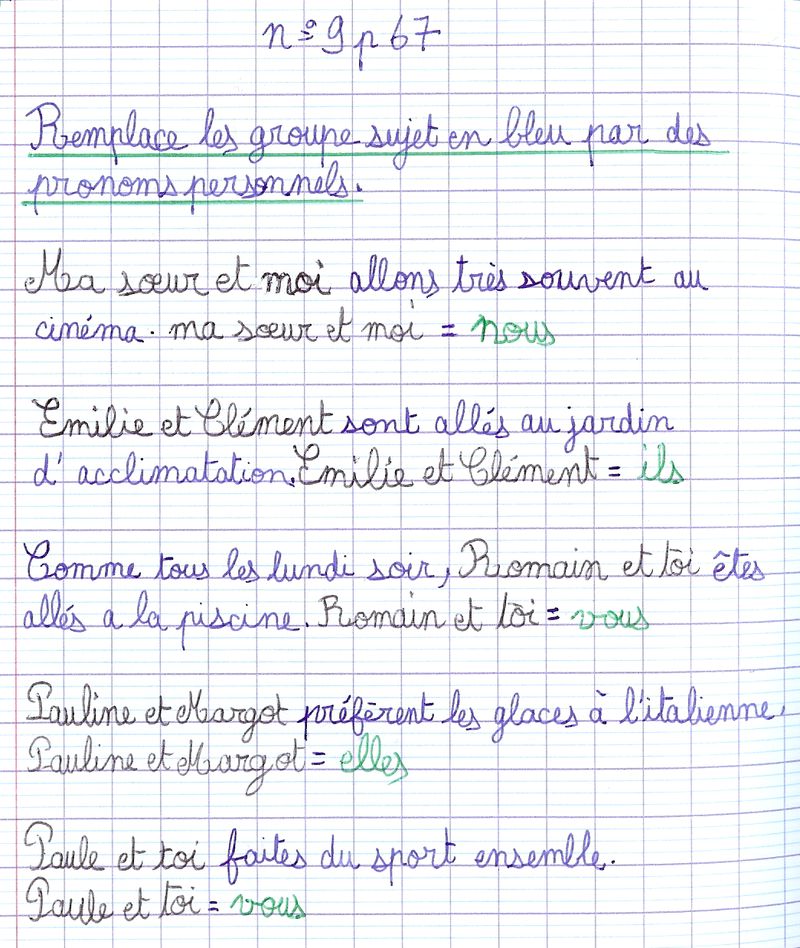 n° 9 p 67
Remplace les groupe sujet en bleu par des
pronoms personnels.
Ma sœur et moi allons très souvent au
cinéma. ma sœur et moi = nous
Emilie et Clément sont allés au jardin
d'acclimatation. Emilie et Clément = ils
Comme tous les lundi soir, Romain et toi êtes
allés a la piscine. Romain et toi = vous
Pauline et Margot préfèrent les glaces à l'italienne.
Pauline et Margot = elles
Paule et toi faites du sport ensemble.
Paule et toi = vous